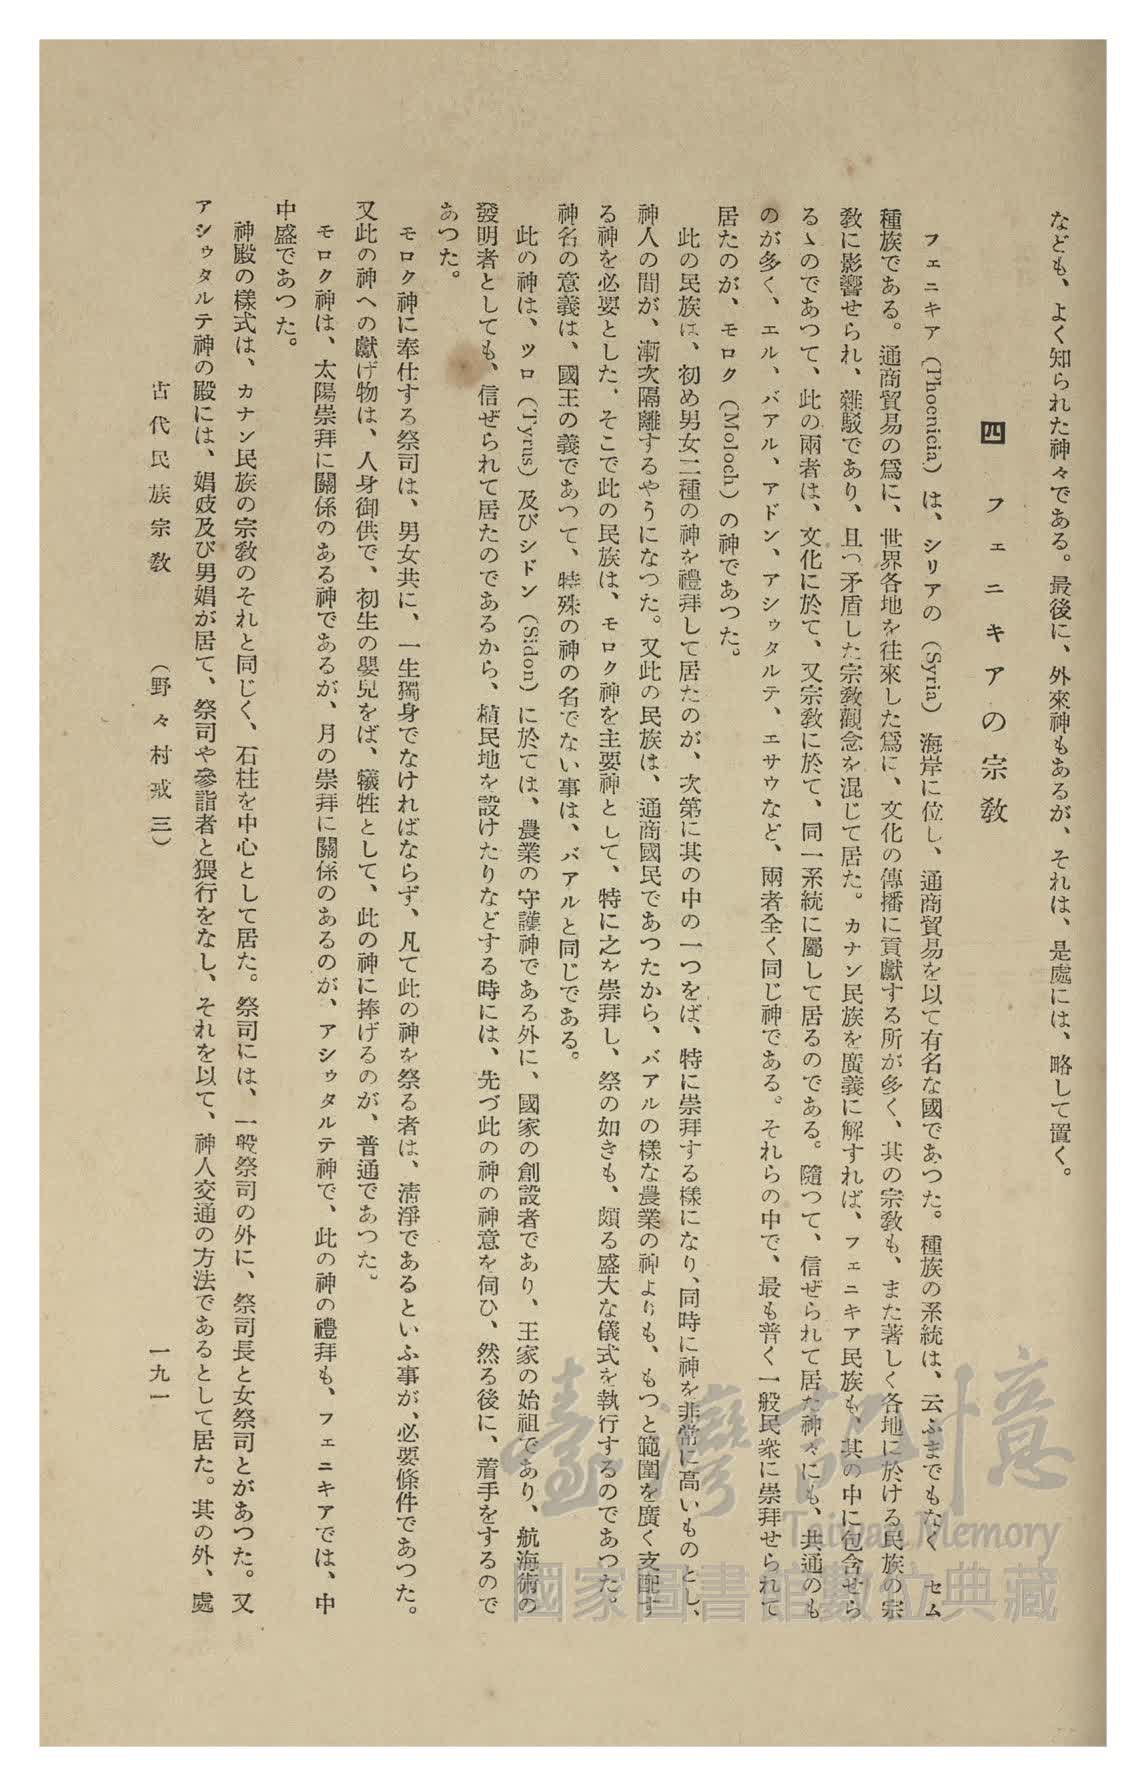 なども、よく知られた神々である。最後に、外來神もあるが、それは、是處には、略して置く。
四　フェニキアの宗教
フェニキア（Phoenicia）は、シリアの（Syria）海岸に位し、通商貿易を以て有名な國であつた。種族の系統は、云ふまでもなく　セム
種族である。通商貿易の爲に、世界各地を往來した爲に、文化の傳播に貢獻する所が多く、其の宗教も、また著しく各地に於ける民族の宗
教に影響せられ、雜駁であり、且つ矛盾した宗教觀念を混じて居た。カナン民族を廣義に解すれば、フェニキア民族も、其の中に包含せら
るゝのであつて、此の兩者は、文化に於て、又宗教に於て、同一系統に屬して居るのである。隨つて、信ぜられて居た神々にも、共通のも
のが多く、エル、バアル、アドン、アシゥタルテ、エサウなど、兩者全く同じ神である。それらの中で、最も普く一般民衆に崇拜せられて
居たのが、モロク（Moloch）の神であつた。
此の民族は、初め男女二種の神を禮拜して居たのが、次第に其の中の一つをば、特に崇拜する樣になり、同時に神を非常に高いものとし、
神人の間が、漸次隔離するやうになつた。又此の民族は、通商國民であつたから、バアルの樣な農業の神よりも、もつと範圍を廣く支配す
る神を必要とした、そこで此の民族は、モロク神を主要神として、特に之を崇拜し、祭の如きも、頗る盛大な儀式を執行するのであつた。
神名の意義は、國王の義であつて、特殊の神の名でない事は、バアルと同じである。
此の神は、ツロ（Tyrus）及びシドン（Sidon）に於ては、農業の守護神である外に、國家の創設者であり、王家の始祖であり、航海術の
發明者としても、信ぜられて居たのであるから、植民地を設けたりなどする時には、先づ此の神の神意を伺ひ、然る後に、着手をするので
あつた。
モロク神に奉仕する祭司は、男女共に、一生獨身でなければならず、凡て此の神を祭る者は、清淨であるといふ事が、必要條件であつた。
又此の神への獻げ物は、人身御供で、初生の嬰兒をば、犧牲として、此の神に捧げるのが、普通であつた。
モロク神は、太陽崇拜に關係のある神であるが、月の崇拜に關係のあるのが、アシゥタルテ神で、此の神の禮拜も、フェニキアでは、中
中盛であつた。
神殿の樣式は、カナン民族の宗教のそれと同じく、石柱を中心として居た。祭司には、一般祭司の外に、祭司長と女祭司とがあつた。又
アシゥタルテ神の殿には、娼妓及び男娼が居て、祭司や參詣者と猥行をなし、それを以て、神人交通の方法であるとして居た。其の外、處
古代民族宗教　（野々村戒三）　一九一
臺灣記憶
Taiwan Memory
國家圖書館數位典藏